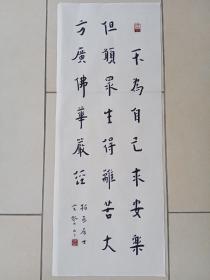 不為自己求安樂
但願眾生得離苦大
方廣佛華嚴經